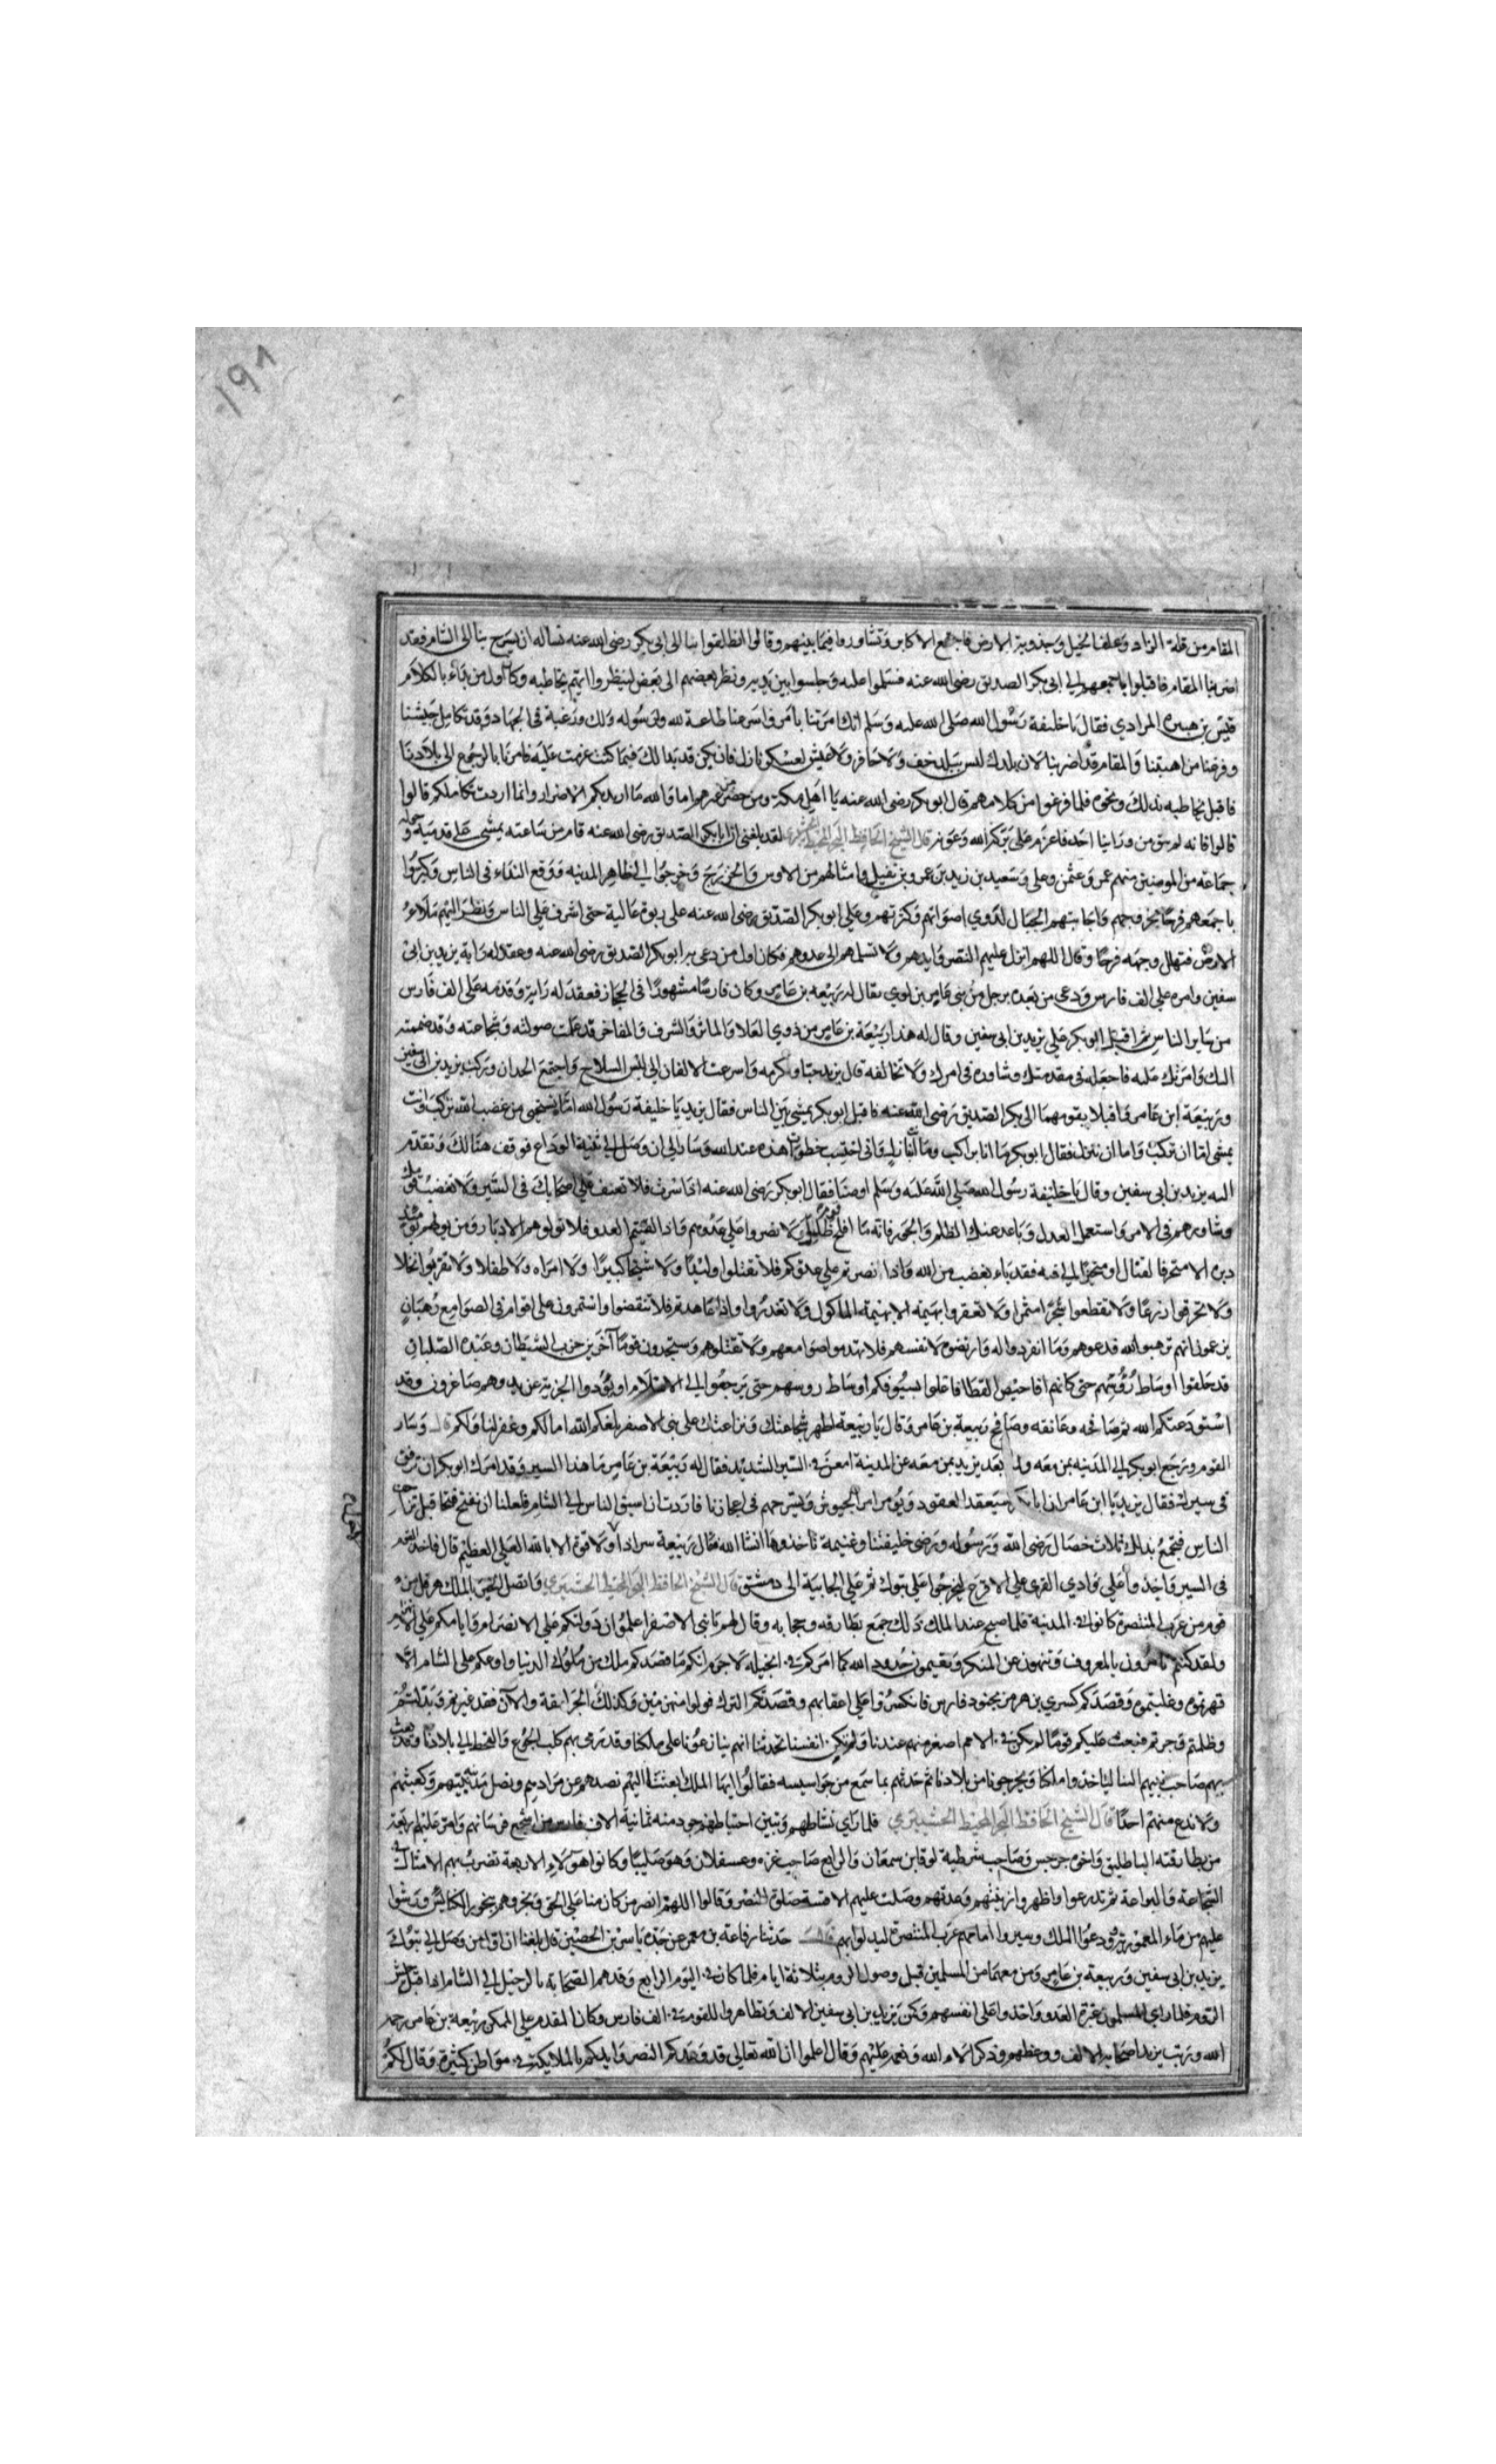 المقام من قلة الزاد وعلف الخيل وجدوبة الارض فاجتمع الاكابر وتشاوروا فيما بينهم وقالوا انطلقوا بنا الى ابى بكر رضى الله عنه نساله ان يسرح بنا الى الشام فقد
اضر بنا المقام فاقبلوا باجمعهم الى ابى بكر الصديق رضى الله عنه فسلموا عليه وجلسوا بين يديه ونظر بعضهم الى بعض لينظروا ايهم يخاطبه وكان اول من بداء بالكلام
قيس بن هبيره المرادي فقال يا خليفة رسول الله صلى الله عليه وسلم انك امرتنا بامر فاسرعنا طاعة لله ولرسوله ولك ورغبة في الجهاد وقد تكامل جيشنا
وفرغنا من اهبتنا والمقام قد اضر بنا لان بلدك ليس ببلد خف ولا حافر ولا عيش لعسكر نازل فان يكن قد بدا لك فيما كنت عزمت عليه فامرنا بالرجوع الى بلادنا
فاقبل يخاطبه بذلك ونحوه فلما فرغوا من كلامهم قال ابو بكر رضى الله عنه يا اهل مكة ومن حضر من غيرهم اما والله ما اريد بكم الاضرار وانما اردت تكاملكم قالوا
قالوا فانه لم يبق من ورائنا احد فاعزم على بركة الله وعونه قال الشيخ الحافظ البحر المحيط لقد بلغنى ان ابا بكر الصديق رضى الله عنه قام من ساعته يمشى على قدميه وحوله
جماعة من المومنين منهم عمر وعثمن وعلى وسعيد بن زيد بن عمرو بن نفيل وامثالهم من الاوس والخزرج وخرجوا الى ظاهر المدينه ووقع النداء فى الناس وكبروا
باجمعهم فرحا بخروجهم واجابتهم الجبال لدوي اصواتهم وكثرتهم وعلى ابو بكر الصديق رضى الله عنه على ربوة عالية حتى اشرف على الناس ونظر اليهم ملاءوا
الارض فتهلل وجهه فرحا وقال اللهم انزل عليهم النصر وايدهم ولا تسلمهم الى عدوهم فكان اول من دعى به ابو بكر الصديق رضى الله عنه وعقد له راية يزيد بن ابى
سفين وامره على الف فارس ودعى من بعده برجل من بنى عامر بن لوي يقال له ربيعه بن عامر وكان فارسا مشهورا فى الحجاز فعقد له راية وقدمه على الف فارس
من ساير الناس ثم اقبل ابو بكر على يزيد بن ابى سفين وقال له هذا ربيعة بن عامر من ذوي العلا والماثر والشرف والمفاخر قد علمت صولته وشجاعته وقد ضممته
اليك وامرتك عليه فاجعله فى مقدمتك وشاوره فى امرك ولا تخالفه قال يزيد حبا وكرمه واسرعت الالفان الى لبس السلاح واجتمع الجندان وركب يزيد بن ابى سفين
وربيعة ابن عامر واقبلا بقومهما الى بكر الصديق رضى الله عنه فاقبل ابو بكر يمشى بين الناس فقال يزيد يا خليفة رسول الله انا نستحيى من غضب الله نركب وانت
يمشى اما ان تركب واما ان ننزل فقال ابو بكر ما انا براكب وما انتم بنازلين وانى احتسب خطواتى هذه عند الله وسار الى ان وصل الى ثنية الوداع فوقف هنالك وتقدم
اليه يزيد بن ابى سفين وقال يا خليفة رسول الله صلى الله عليه وسلم اوصنا فقال ابو بكر رضى الله عنه اذا سرت فلا تعنف على اصحابك فى السير ولا تغضب قومك
وشاورهم فى الامر واستعمل العدل وباعد عنك الظلم والجور فانه ما افلح قوم ظلموا ولا نصروا على عدوهم واذا لقيتم العدو فلا تولوهم الادبار ومن يولهم يومئذ
دبره الا متحرفا لقتال او متحيزا الى فئه فقد باء بغضب من الله واذا نصرتم على عدوكم فلا تقتلوا وليدا ولا شيخا كبيرا ولا امراه ولا طفلا ولا تقربوا نخلا
ولا تحرقوا زرعا ولا تقطعوا شجرا مثمرا ولا تعقروا بهيمة الا بهيمة الماكول ولا تغدروا واذا عاهدتم فلا تنقضوا وستمرون على اقوام فى الصوامع رهبان
يزعمون انهم ترهبوا لله فدعوهم وما انفردوا له وارتضوه لانفسهم فلا تهدموا صوامعهم ولا تقتلوهم وستجدون قوما آخرين حزب الشيطان وعبدة الصلبان
قد حلقوا اوساط رؤسهم حتى كانها افاحيص القطا فاعلوا بسيوفكم اوساط روسهم حتى يرجعوا الى الاسلام او يؤدوا الجزية عن يد وهم صاغرون وقد
استودعتكم الله ثم صافحه وعانقه وصافح ربيعة بن عامر وقال يا ربيعة اظهر شجاعتك وبراعتك على بنى الاصفر بلغكم الله امالكم وغفر لنا ولكم قال وسار
القوم ورجع ابو بكر الى المدينه بمن معه ولما بعد يزيد بمن معه عن المدينة امعن فى السير الشديد فقال له ربيعة بن عامر ما هذا السير وقد امرك ابو بكر ان ترفق
فى سيرك فقال يزيد يا ابن عامر ان ابا بكر سيعقد العقود ويومر امرا الجيوش ويسرحهم فى اعجازنا فاردت ان اسبق الناس الى الشام فلعلنا ان نفتح فتحا قبل تلاحق
الناس فتجمع بذلك ثلاث خصال رضى الله ورسوله ورضى خليفتنا وغنيمة ناخذوها انشا الله فقال ربيعة سر اذا ولا قوة الا بالله العلى العظيم قال فاخذ القوم
فى السير واخذوا على وادي القرى على الاقرح ليخرجوا على تبوك ثم على الجابية الى دمشق قال الشيخ الحافظ البحر المحيط واتصل الخبر بالملك هرقل من
قوم من عرب المتنصرة كانوا فى المدينة فلما صح عند الملك ذلك جمع بطارقه وحجابه وقال لهم يا بنى الاصفر اعلموا ان دولتكم على الانصرام وايامكم على
ولقد كنتم تامرون بالمعروف وتنهون عن المنكر وتقيمون حدود الله كما امركم فى انجيله لا جرم انكم ما قصدكم ملك من ملوك الدنيا ونازعكم على الشام الا
قهرتموه وغلبتموه وقصدكم كسري بن هرمز بجنود فارس فانكسروا على اعقابهم وقصدكم الترك فولوا منهزمين وكذلك الجرامقة والآن فقد غيرتم وبدلتم
وظلمتم وجرتم فبعث عليكم قوما لم يكن فى الامم اصغر منهم عندنا ولم تكن انفسنا تحدثنا انهم ينازعونا على ملكنا وقد رمى بهم كلب الجوع والقحط الى بلادنا وقد بعث
بهم صاحب نبيهم الينا لياخذوا ملكنا ويخرجونا من بلادنا ثم حدثهم بما سمع من جواسيسه فقالوا ايها الملك ابعثنا اليهم نصدهم عن مرادهم ونصل مدينتهم وكعبتهم
ولا ندع منهم احدا قال الشيخ الحافظ البحر المحيط فلما راى نشاطهم وتبين احتباطهم جرد منه ثمانية الاف فارس من اشجع فرسانهم وامر عليهم اربعة
من بطارقته الباطليق واخوه جرجس وصاحب شرطية لوقا بن سمعان والرابع صاحب غزه وعسقلان وهو صليبا وكانوا هولاء الاربعة تضرب بهم الامثال فى
الشجاعة والبراعة ثم تدرعوا واظهروا زينتهم وعدتهم وصلت عليهم الاقسة صلوة النصر وقالوا اللهم انصر من كان منا على الحق وبخروهم ببخور الكنائس ورشوا
عليهم من ماء المعمورية ودعوا الملك وسيروا امامهم عرب المتنصرة ليدلوا بهم قال حدثنا رفاعة بن معمر عن جده ياسر بن الحصين قال بلغنا ان اول من وصل الى تبوك
يزيد بن ابى سفين وربيعة بن عامر ومن معهما من المسلمين قبل وصول الروم بثلاثة ايام فلما كان فى اليوم الرابع وقد هم الصحابة بالرحيل الى الشام اذ اقبل جيش
الروم فلما راى المسلمون غبرة العدو واخذوا على انفسهم وكمن يزيد بن ابى سفين الالف وتظاهروا للقوم فى الف فارس وكان المقدم على المكمن ربيعة بن عامر رحمه
الله ورتب يزيد اصحابه الالف ووعظهم وذكر آلاء الله ونعمه عليهم وقال اعلموا ان الله تعالى قد وعدكم النصر وايدكم بالملايكة فى مواطن كثيرة وقال لكم